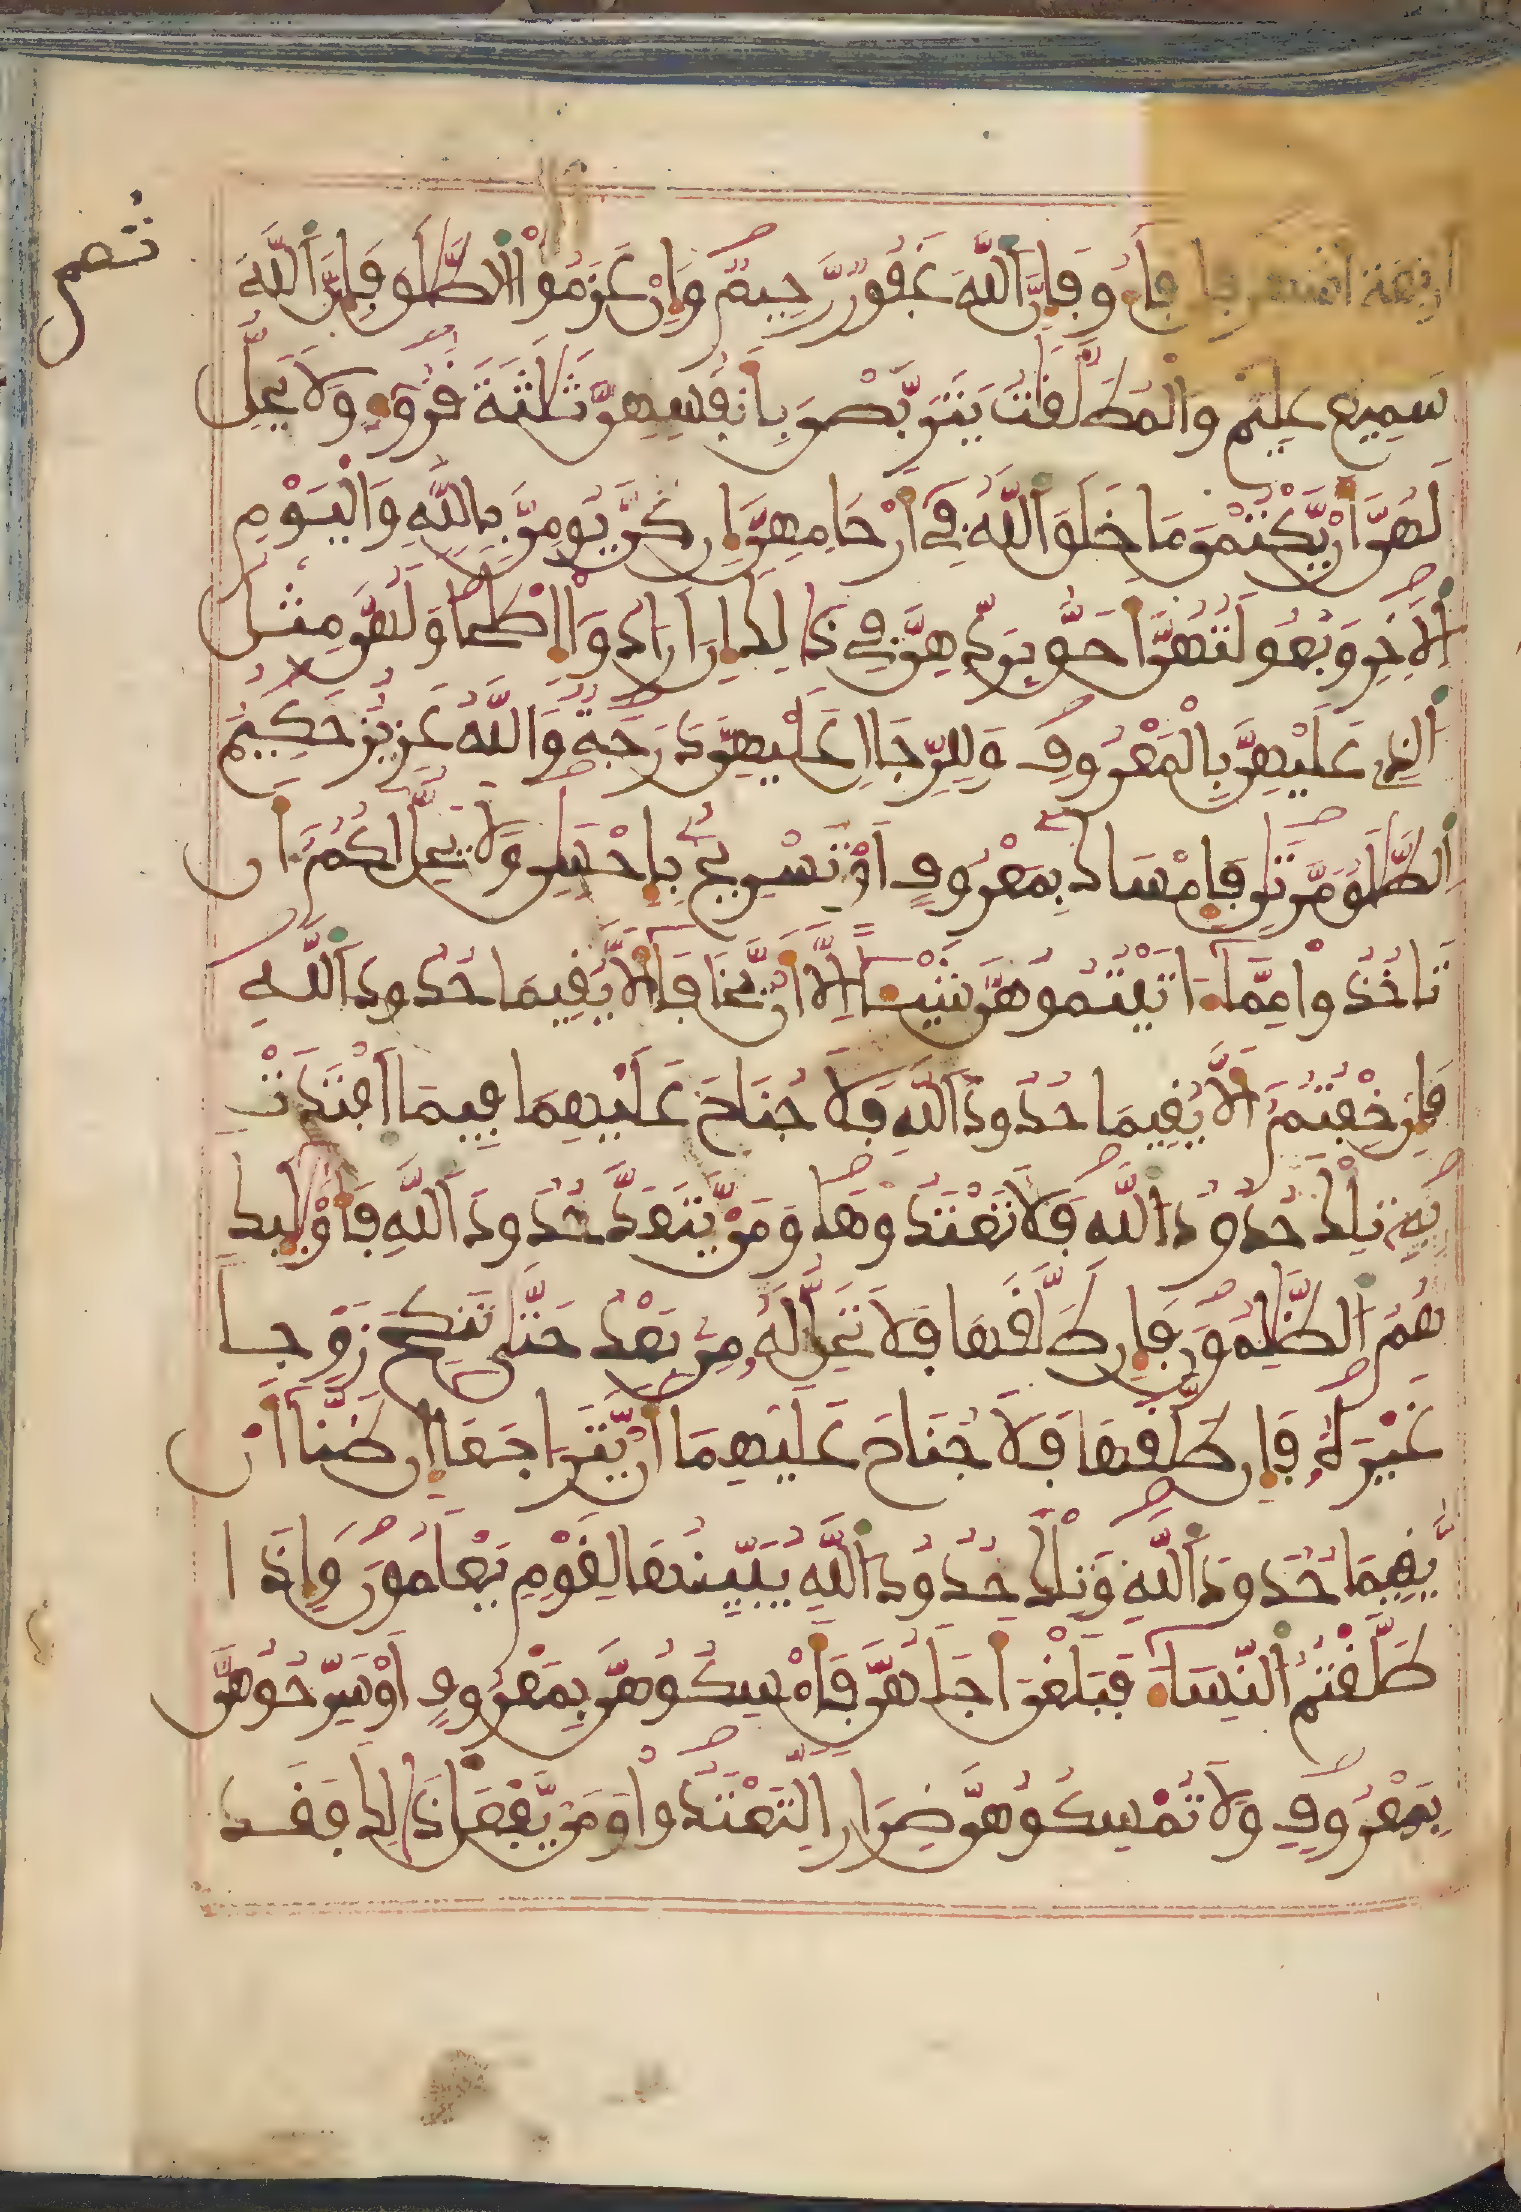 ثمن
أَرْبَعَةِ أَشْهُرٍ فَإِن فَآءُو فَإِنَّ اَللَّهَ غَفُورٌ رَّحِيمٌ وَإِنْ عَزَمُواْ اُلطَّلَٰقَ فَإِنَّ اَللَّهَ
سَمِيعٌ عَلِيمٌ وَالْمُطَلَّقَٰتُ يَتَرَبَّصْنَ بِأَنفُسِهِنَّ ثَلَٰثَةَ قُرُوٓءٍ وَلَا يَحِلُّ
لَهُنَّ أَنْ يَّكْتُمْنَ مَا خَلَقَ اَللَّهُ فِىٓ أَرْحَامِهِنَّ إِن كُنَّ يُومِنَّ بِاللَّهِ وَالْيَوْمِ
اِلَاخِرِ وَبُعُولَتُهُنَّ أَحَقُّ بِرَدِّهِنَّ فِى ذَٰلِكَ إِنَ اَرَادُوٓاْ إِصْلَٰحاً وَلَهُنَّ مِثْلُ
اُلذِى عَلَيْهِنَّ بِالْمَعْرُوفِ وَلِلرِّجَالِ عَلَيْهِنَّ دَرَجَةٌ وَاللَّهُ عَزِيزٌ حَكِيمٌ
اِلطَّلَٰقُ مَرَّتَٰنِ فَإِمْسَاكٌ بِمَعْرُوفٍ اَوْ تَسْرِيحٌ بِإِحْسَٰنٍ وَلَا يَحِلُّ لَكُمُۥٓ أَن
تَاخُذُواْ مِمَّآ ءَاتَيْتُمُوهُنَّ شَيْـٔاً اِلَّآ أَنْ يَّخَافَآ أَلَّا يُقِيمَا حُدُودَ اَللَّهِ
فَإِنْ خِفْتُمُۥٓ أَلَّا يُقِيمَا حُدُودَ اَللَّهِ فَلَا جُنَاحَ عَلَيْهِمَا فِيمَا اَفْتَدَتْ
بِهِۦ تِلْكَ حُدُودُ اُللَّهِ فَلَا تَعْتَدُوهَا وَمَنْ يَّتَعَدَّ حُدُودَ اَللَّهِ فَأُوْلَٰٓئِكَ
هُمُ اُلظَّٰلِمُونَ فَإِن طَلَّقَهَا فَلَا تَحِلُّ لَهُۥ مِنۢ بَعْدُ حَتَّىٰ تَنكِحَ زَوْجاً
غَيْرَهُۥ فَإِن طَلَّقَهَا فَلَا جُنَاحَ عَلَيْهِمَآ أَنْ يَّتَرَاجَعَآ إِن ظَنَّآ أَنْ
يُّقِيمَا حُدُودَ اَللَّهِ وَتِلْكَ حُدُودُ اُللَّهِ يُبَيِّنُهَا لِقَوْمٍ يَعْلَمُونَ وَإِذَا
طَلَّقْتُمُ اُلنِّسَآءَ فَبَلَغْنَ أَجَلَهُنَّ فَأَمْسِكُوهُنَّ بِمَعْرُوفٍ اَوْ سَرِّحُوهُنَّ
بِمَعْرُوفٍ وَلَا تُمْسِكُوهُنَّ ضِرَاراً لِّتَعْتَدُواْ وَمَنْ يَّفْعَلْ ذَٰلِكَ فَقَد